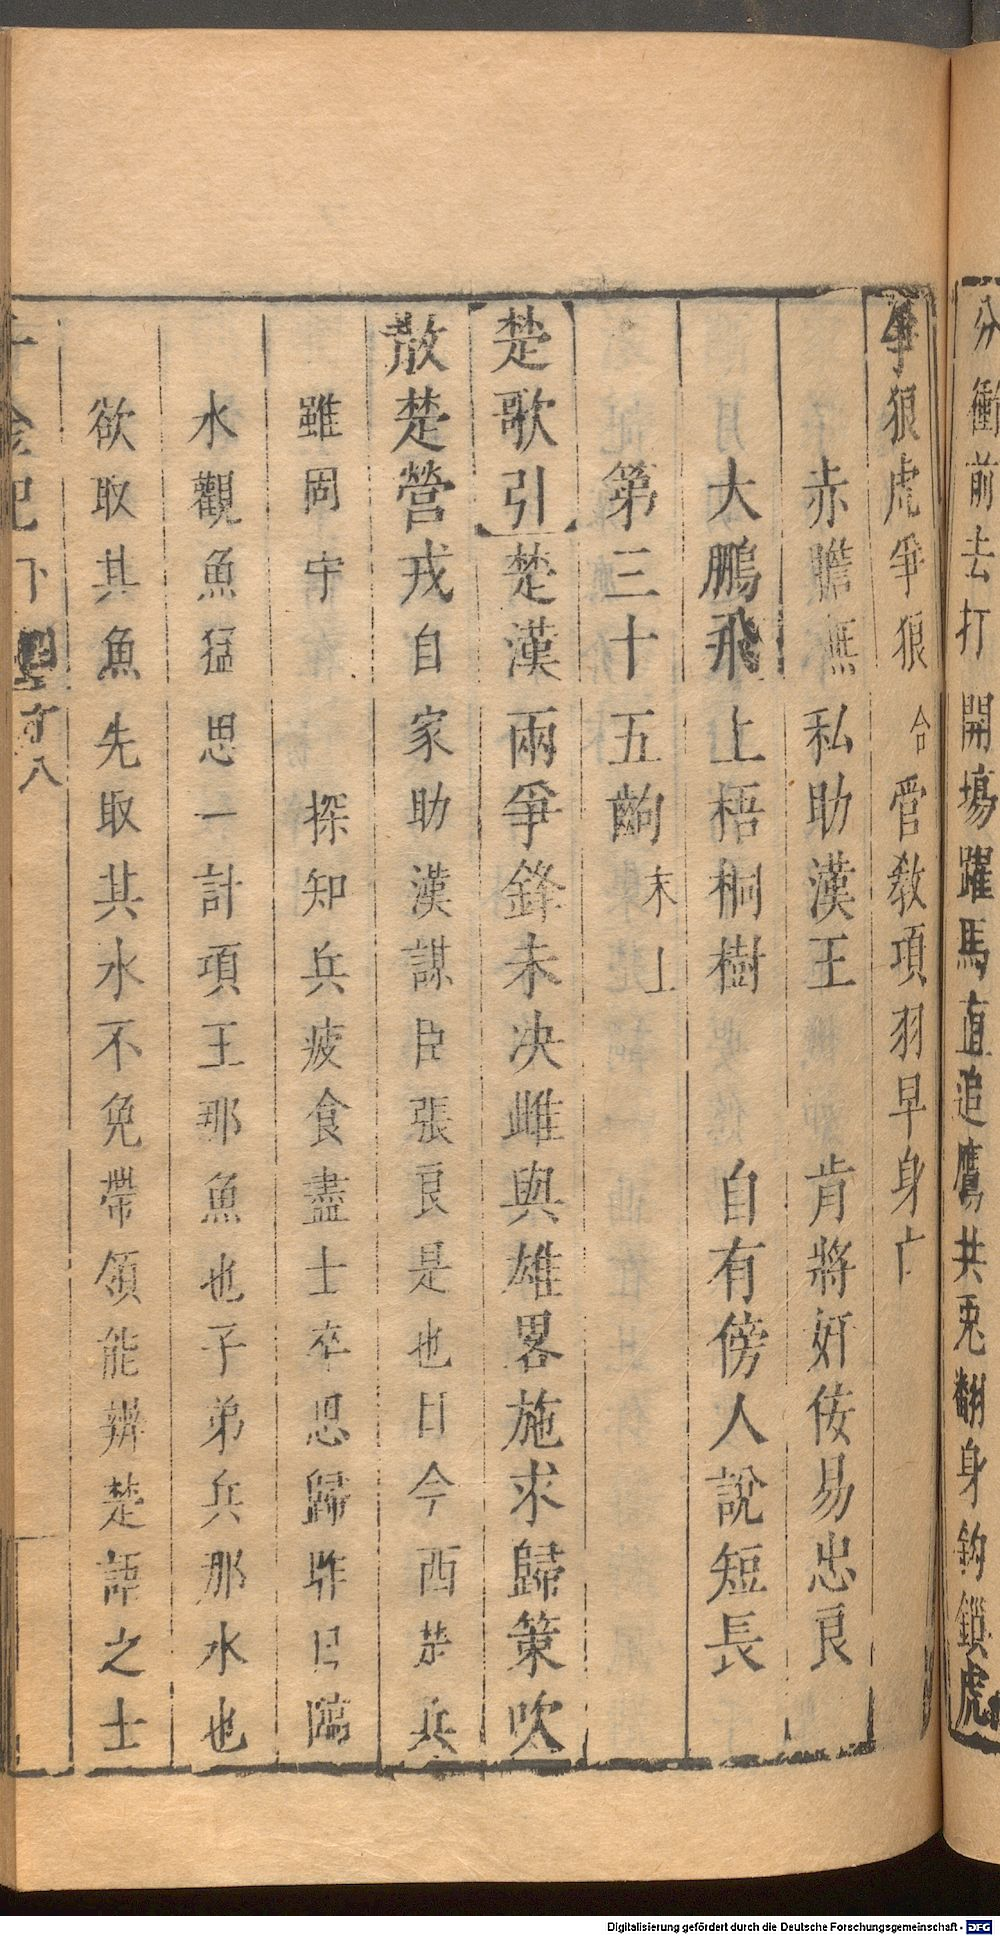 分衝前去打　開塲躍馬直追鷹共兎翻身鈎鎖虎
爭狼虎爭狼　合　管敎項羽早身亡
赤膽無私助漢王　肯將奸佞易忠良
大鵬飛上梧桐樹　自有傍人說短長
第三十五齣　末上
楚歌引　楚漢兩爭鋒未决雌與雄畧施求歸策吹
散楚營戎　自家助漢謀臣張良是也目今西楚兵
雖固守　探知兵疲食盡士卒思歸昨日臨
水觀魚猛思一計項王那魚也子弟兵那水也
欲取其魚先取其水不免帶領能辨楚語之士
千金記　下　八
Digitalisierung gefördert durch die Deutsche Forschungsgemeinschaft - DFG